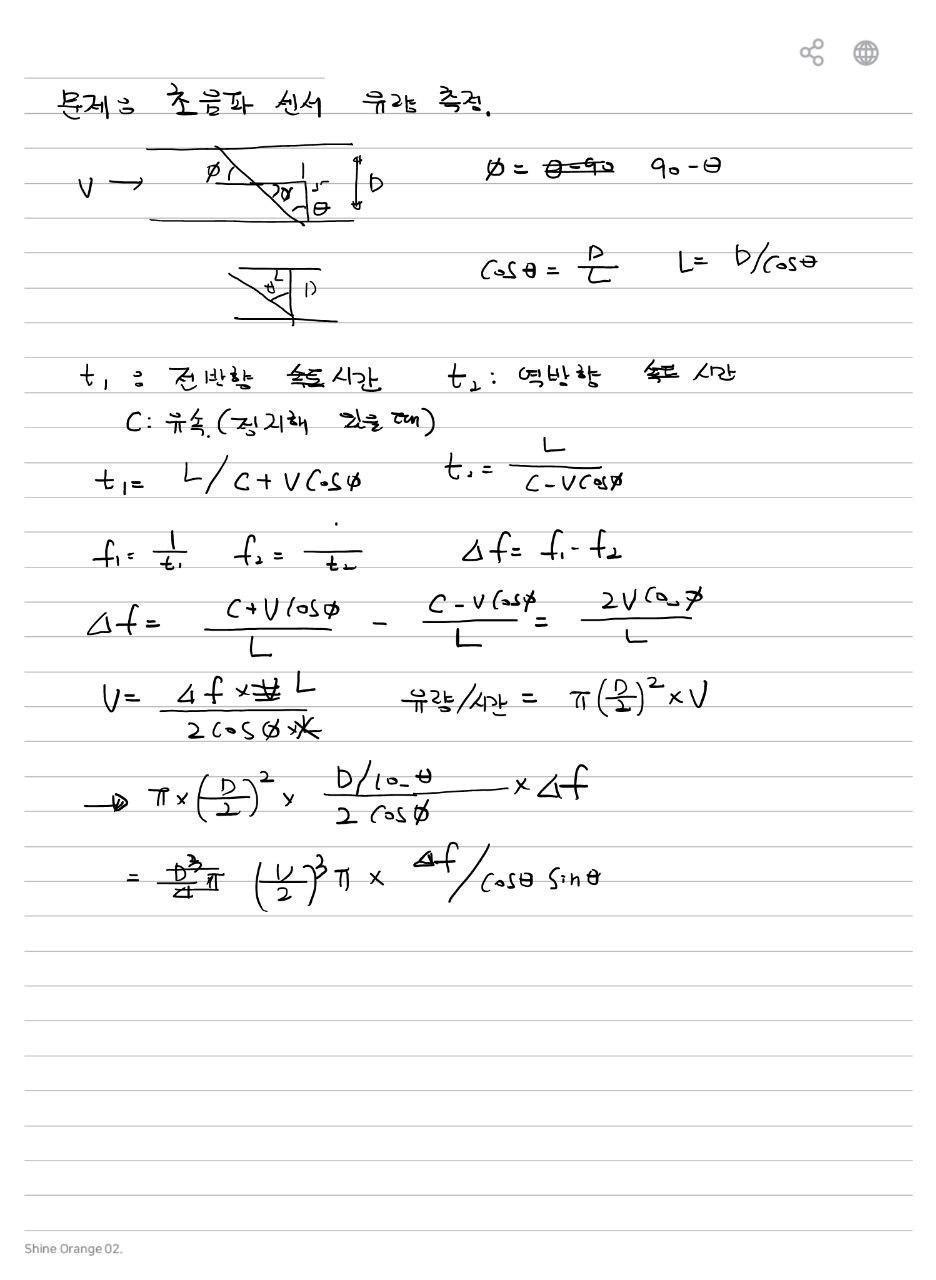 문제: 초음파 센서 유량 측정.
V → φ α θ D φ = 90 - θ
θ L D cosθ = D/L L = D/cosθ
t₁ : 전방향 시간 t₂ : 역방향 시간
C : 유속. (정지해 있을 때)
t₁ = L / C + V cosφ t₂ = L / C - V cosφ
f₁ = 1/t₁ f₂ = 1/t₂ Δf = f₁ - f₂
Δf = C + V cosφ / L - C - V cosφ / L = 2V cosφ / L
V = Δf × L / 2 cosφ 유량/시간 = π(D/2)² × V
→ π × (D/2)² × D/cosθ / 2 cosφ × Δf
= (D/2)³ π × Δf / cosθ sinθ
Shine Orange 02.